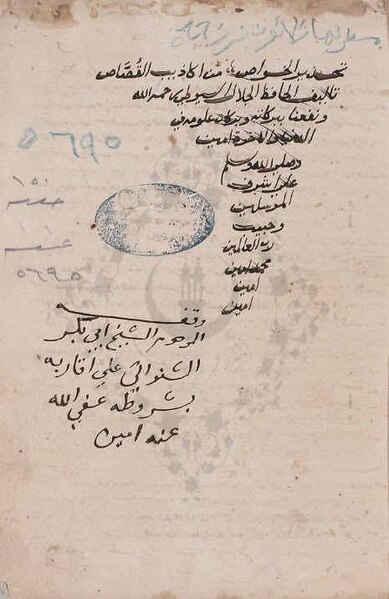 تحذير الخواص من اكاذيب القُصَّاص
تاليف الحافظ الجلال السيوطي رحمه الله
ونفعنا ببركاته وبركات علومه في
الدنيا والاخرة امين
وصلى الله وسلم
على اشرف
المرسلين
وحبيب
رب العالمين
محمد امين
امين
امين
٥٦٩٥
١٥٠
٥٦٩٥
وقفه
المرحوم الشيخ ابي بكر
الشنواني على اقاربه
بشروطه عفي الله
عنه امين